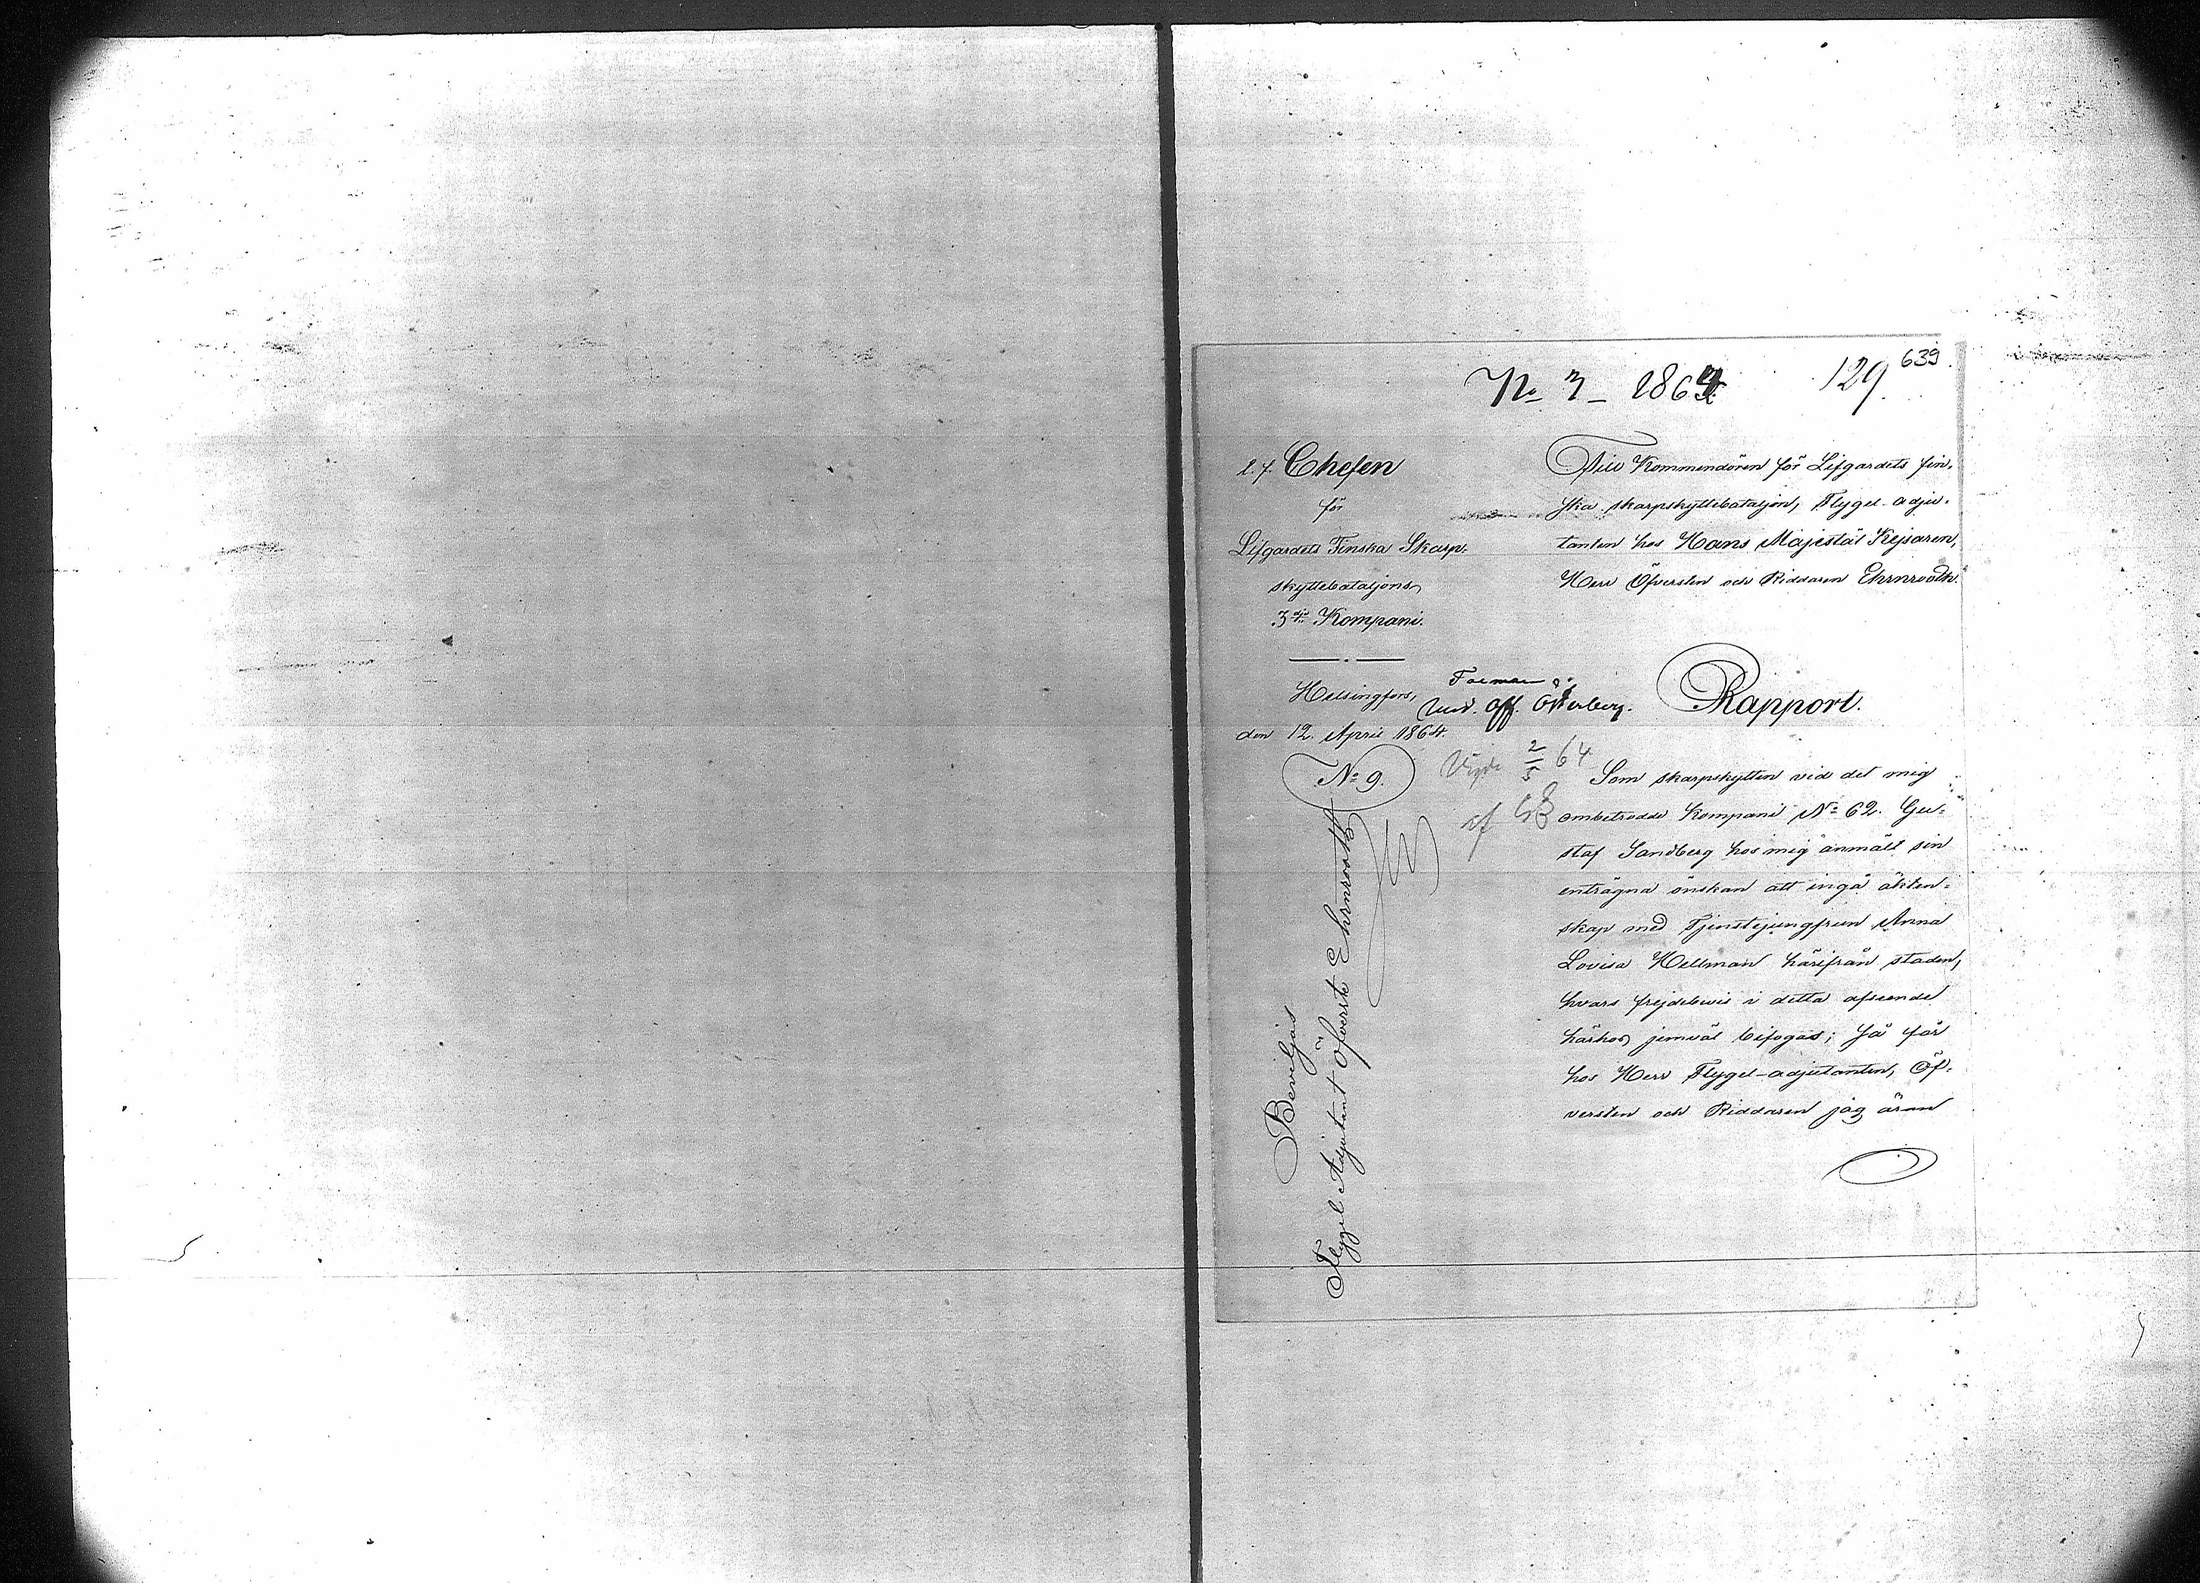 639
No 7 – 1864
129
t. f. Chefen
för
Lifgardets Finska Skarp-
skyttebataljons
3dje Kompani.
Helsingfors,
den 12. April 1864.
No 9.
Till Kommendören för Lifgardets fin-
ska skarpskyttebataljon, Flygel-adju-
tanten hos Hans Majestät Kejsaren,
Herr Öfversten och Riddaren Ehrnrooth.
Und. Off. Österberg.
Rapport.
Vigde 2/5 64
af
Som skarpskytten vid det mig
ombetrodde Kompani No 62. Gu-
staf Sandberg hos mig anmält sin
enträgna önskan att ingå äkten-
skap med Tjenstejungfrun Anna
Lovisa Hellman härifrån staden,
hvars frejdebevis i detta afseende
härhos jemväl bifogas; så får
hos Herr Flygel-adjutanten, Öf-
versten och Riddaren jag äran
Beviljas
Flygel Adjutant Öfverste Ehrnrooth